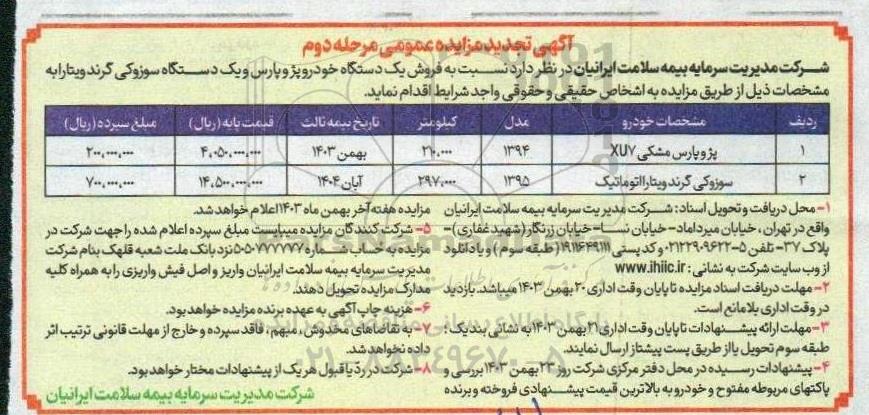 آگهی تجدید مزایده عمومی مرحله دوم
شرکت مدیریت سرمایه بیمه سلامت ایرانیان در نظر دارد نسبت به فروش یک دستگاه خودرو پژو پارس و یک دستگاه سوزوکی گرند ویتارا به
مشخصات ذیل از طریق مزایده به اشخاص حقیقی و حقوقی واجد شرایط اقدام نماید.
ردیف مشخصات خودرو مدل کیلومتر تاریخ بیمه ثالث قیمت پایه (ریال) مبلغ سپرده (ریال)
۱ پژو پارس مشکی XU7 ۱۳۹۴ ۲۱۰،۰۰۰ بهمن ۱۴۰۳ ۴،۰۵۰،۰۰۰،۰۰۰ ۲۰۰،۰۰۰،۰۰۰
۲ سوزوکی گرند ویتارا اتوماتیک ۱۳۹۵ ۲۹۷،۰۰۰ آبان ۱۴۰۴ ۱۴،۵۰۰،۰۰۰،۰۰۰ ۷۰۰،۰۰۰،۰۰۰
۱- محل دریافت و تحویل اسناد: شرکت مدیریت سرمایه بیمه سلامت ایرانیان
واقع در تهران، خیابان میرداماد- خیابان نسا- خیابان زرنگار (شهید غفاری)-
پلاک ۳۷- تلفن ۵-۰۲۱۲۲۹۰۹۶۲۲ و کد پستی ۱۹۱۱۶۴۹۱۱۱ (طبقه سوم) و یا دانلود
از وب سایت شرکت به نشانی: www.ihiic.ir
۲- مهلت دریافت اسناد مزایده تا پایان وقت اداری ۲۰ بهمن ۱۴۰۳ میباشد. بازدید
در وقت اداری بلامانع است.
۳- مهلت ارائه پیشنهادات تا پایان وقت اداری ۲۱ بهمن ۱۴۰۳ به نشانی بند یک؛
طبقه سوم تحویل یا از طریق پست پیشتاز ارسال نمایند.
۴- پیشنهادات رسیده در محل دفتر مرکزی شرکت روز ۲۳ بهمن ۱۴۰۳ بررسی و
پاکتهای مربوطه مفتوح و خودرو به بالاترین قیمت پیشنهادی فروخته و برنده
مزایده هفته آخر بهمن ماه ۱۴۰۳ اعلام خواهد شد.
۵- شرکت کنندگان مزایده میبایست مبلغ سپرده اعلام شده را جهت شرکت در
مزایده به حساب شماره نزد بانک ملت شعبه قلهک بنام شرکت
مدیریت سرمایه بیمه سلامت ایرانیان واریز و اصل فیش واریزی را به همراه کلیه
مدارک مزایده تحویل دهند.
۶- هزینه چاپ آگهی به عهده برنده مزایده خواهد بود.
۷- به تقاضاهای مخدوش، مبهم، فاقد سپرده و خارج از مهلت قانونی ترتیب اثر
داده نخواهد شد.
۸- شرکت در رد یا قبول هر یک از پیشنهادات مختار خواهد بود.
شرکت مدیریت سرمایه بیمه سلامت ایرانیان